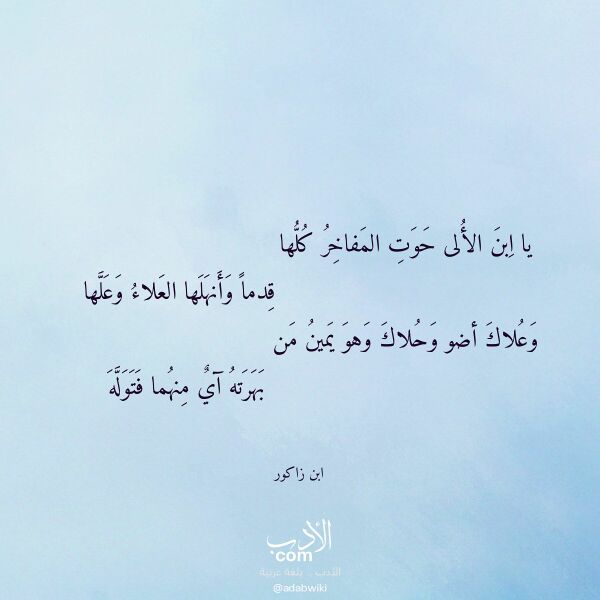 يا اِبنَ الأُلى حَوَتِ المَفاخِرُ كُلُّها
قِدماً وَأَنهَلَها العَلاءُ وَعَلَّها
وَعُلاكَ أضو وَحُلاكَ وَهوَ يَمينُ مَن
بَهَرَتهُ آيٌ مِنهُما فَتَوَلَّهَ
ابن زاكور
الأدب
com
الأدب .. بلغة عربية
@adabwiki